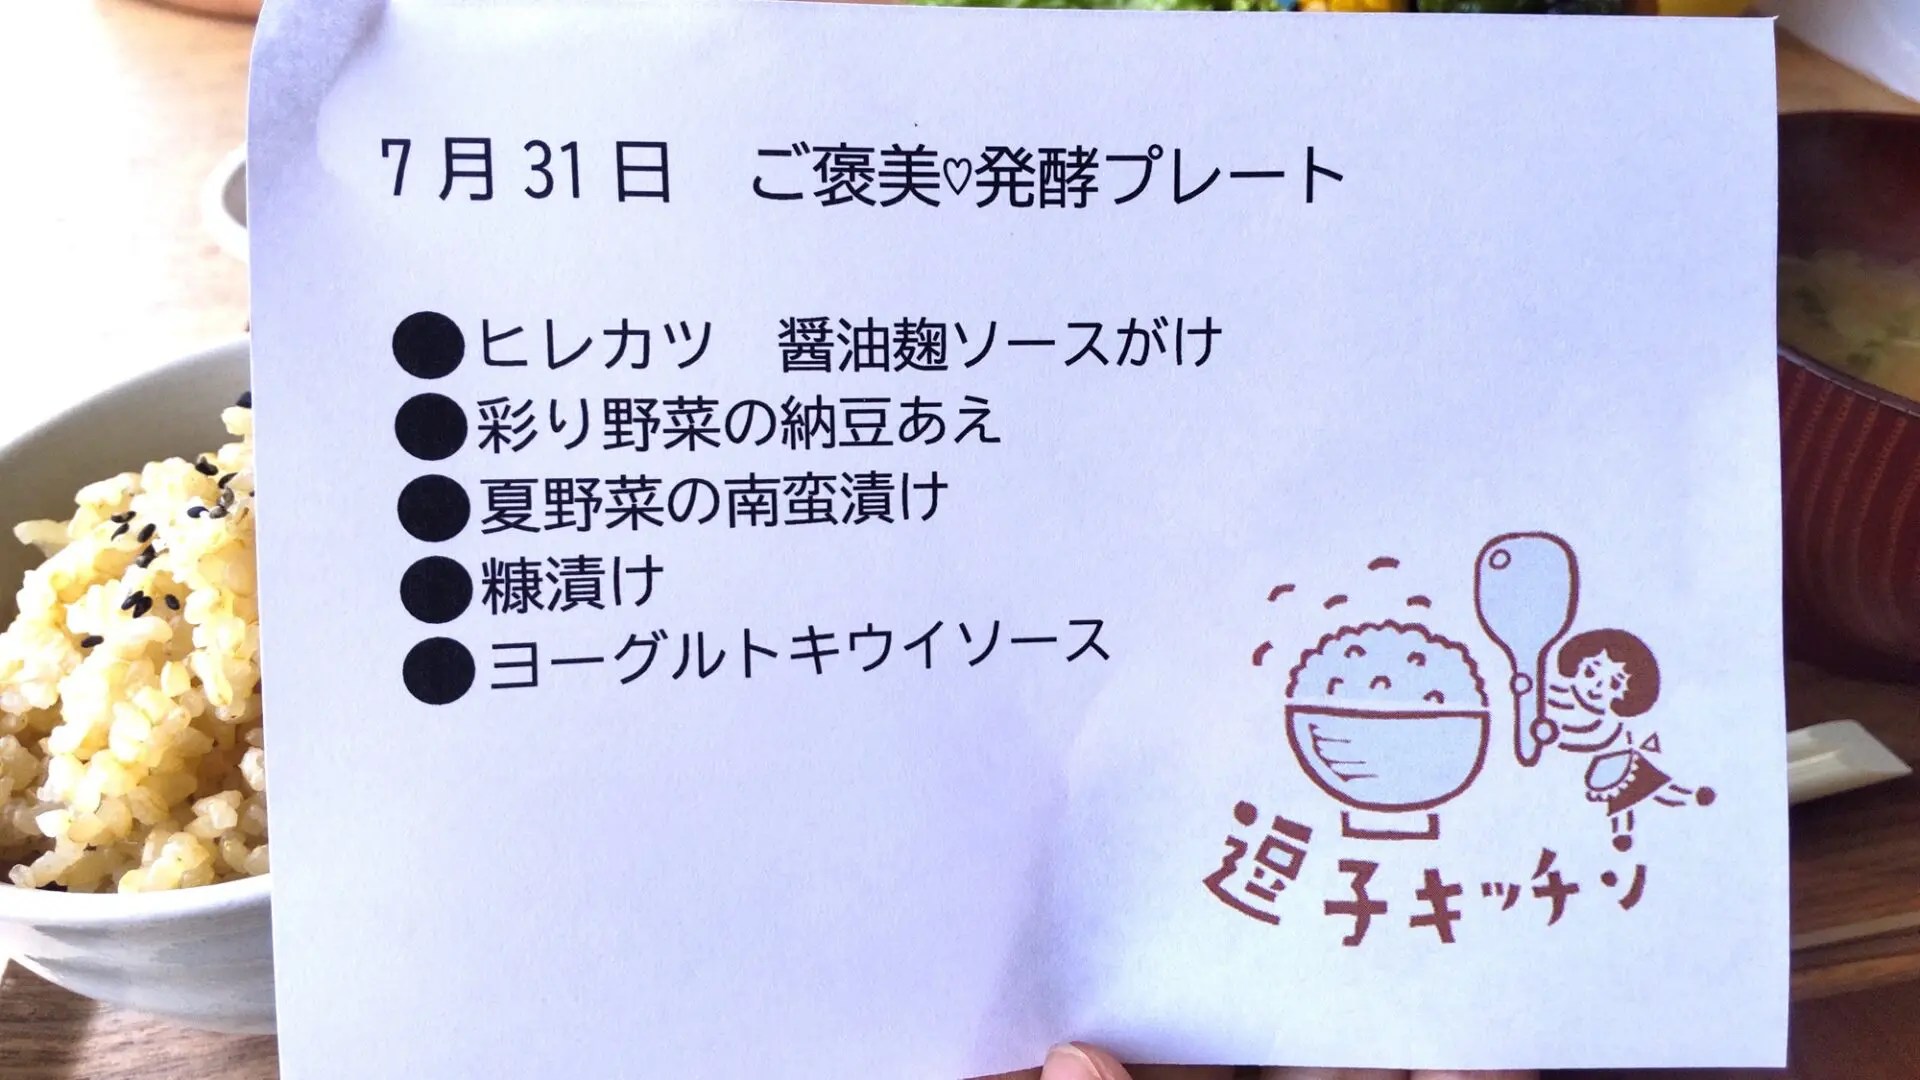 7月31日　ご褒美♡発酵プレート
●ヒレカツ　醤油麹ソースがけ
●彩り野菜の納豆あえ
●夏野菜の南蛮漬け
●糠漬け
●ヨーグルトキウイソース
逗子キッチン